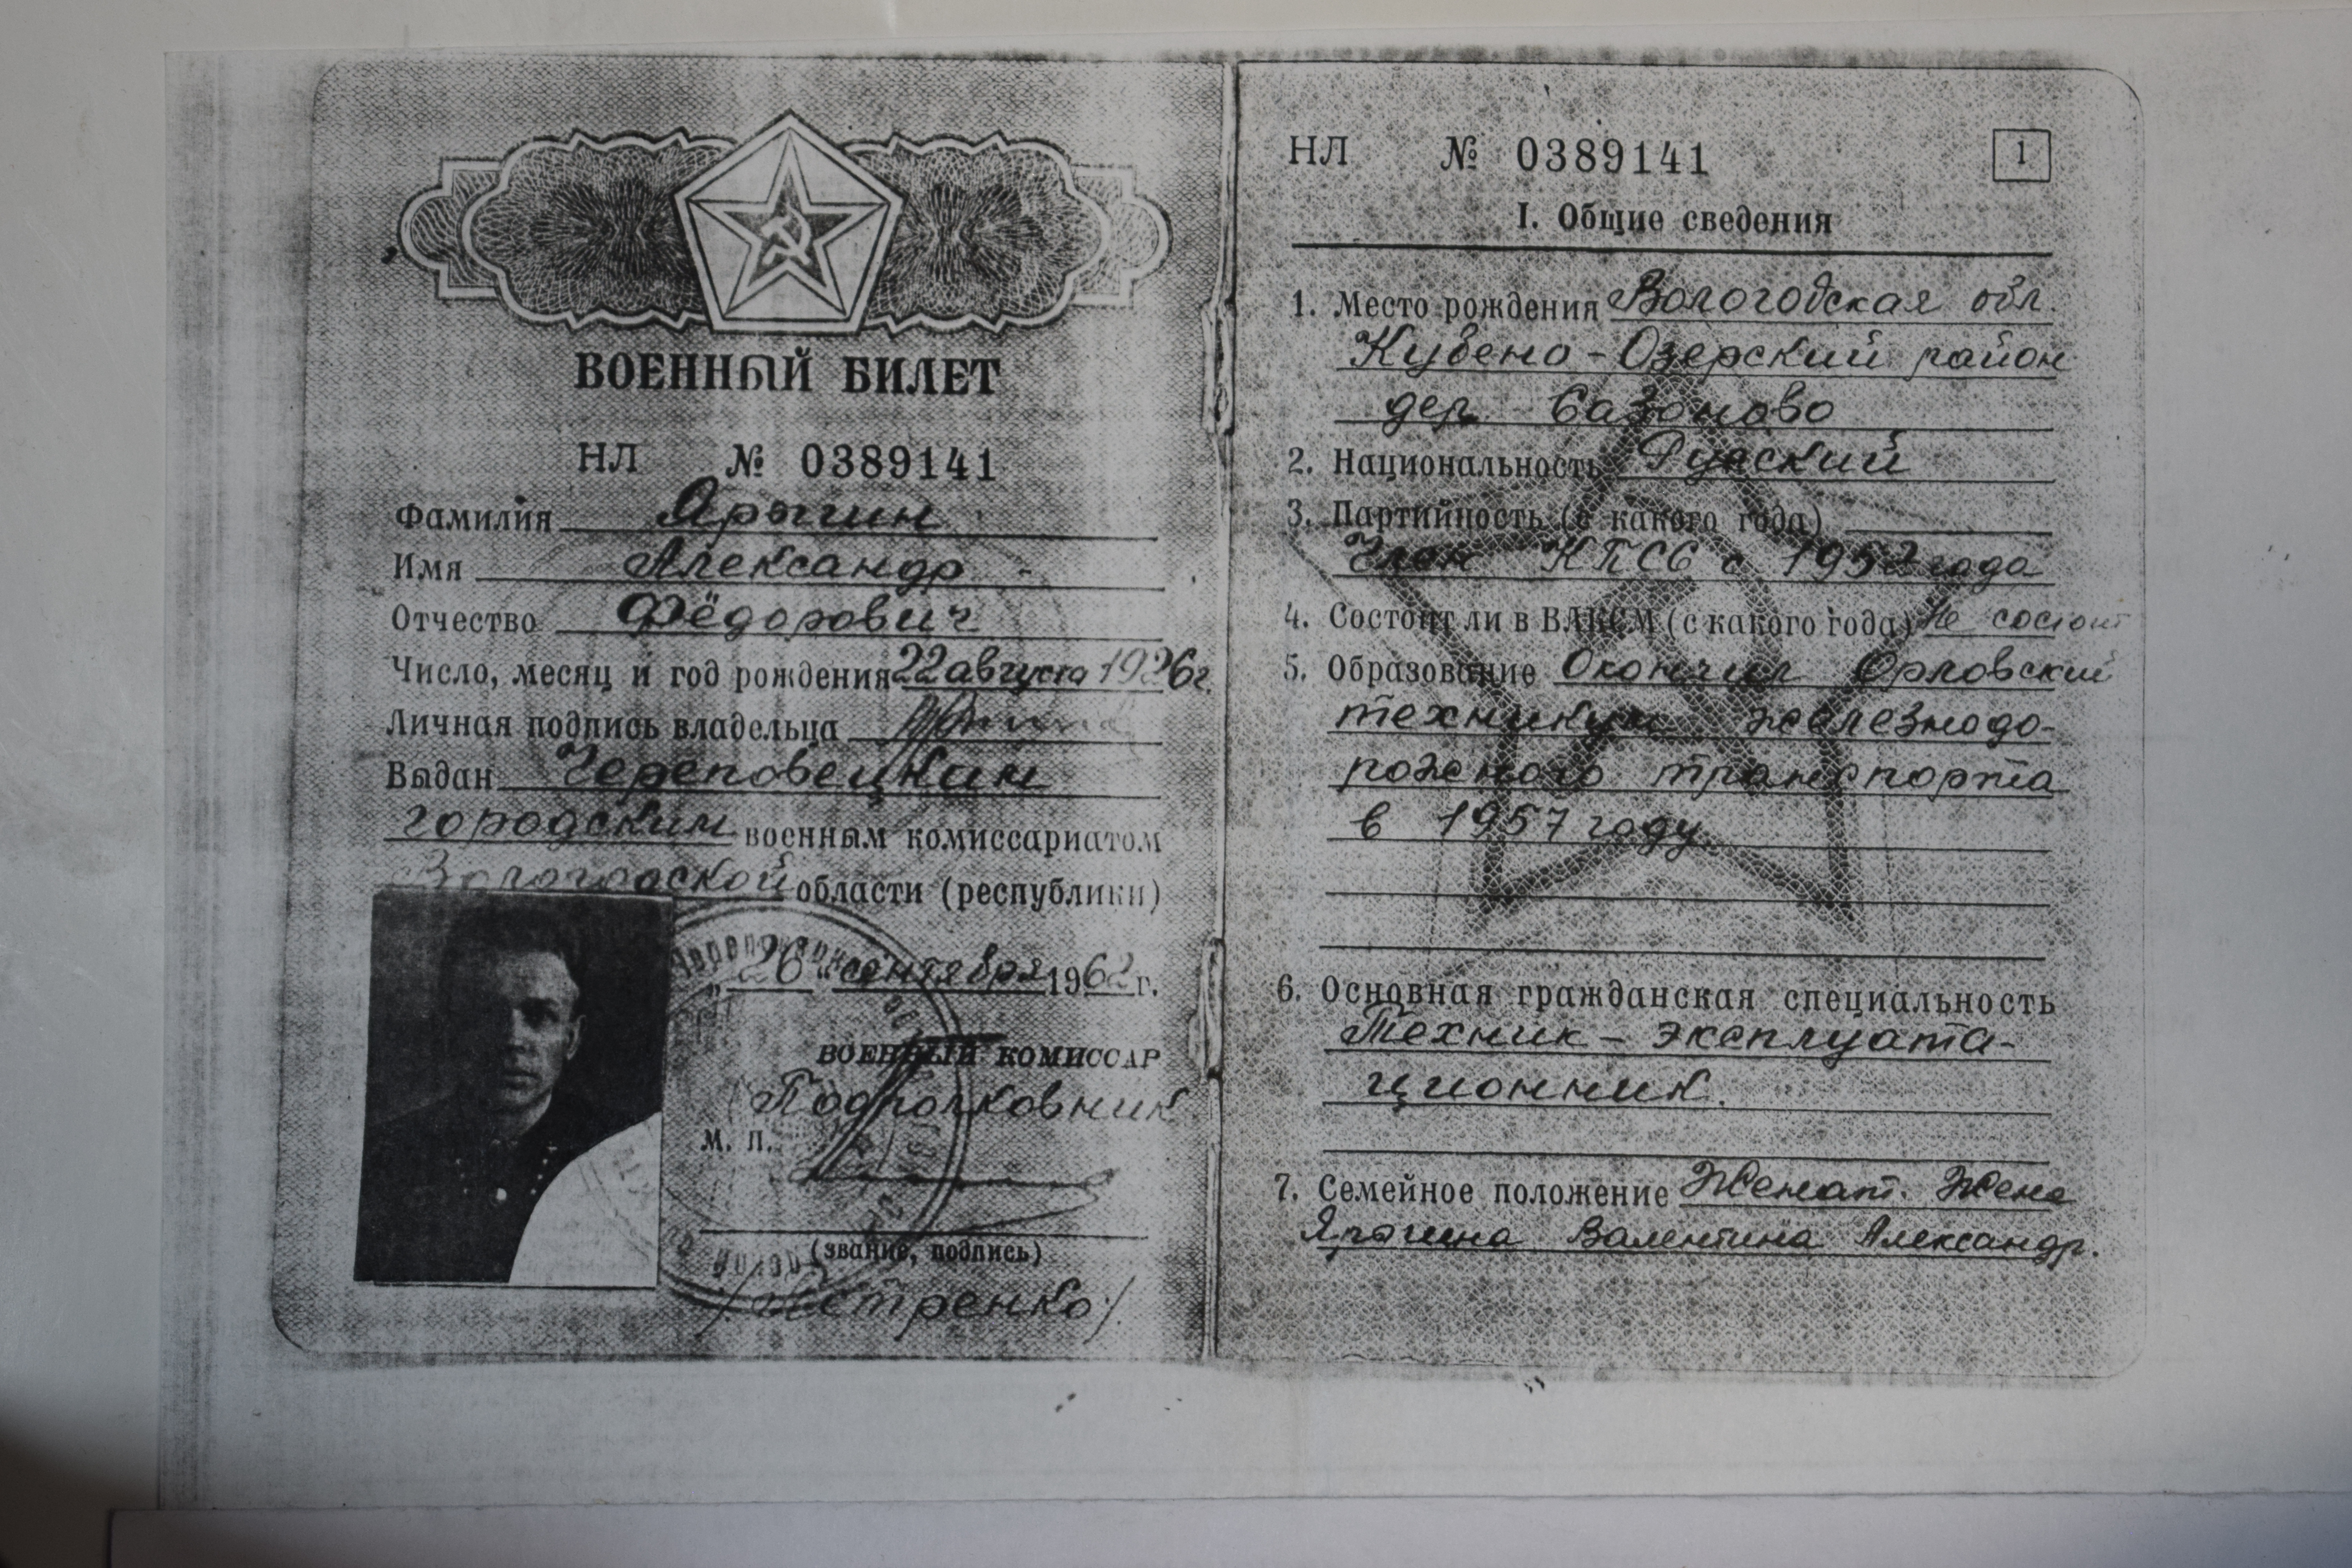 ВОЕННЫЙ БИЛЕТ
НЛ № 0389141
Фамилия Ярыгин
Имя Александр
Отчество Фёдорович
Число, месяц и год рождения 22 августа 1926 г.
Личная подпись владельца
Выдан Череповецким
городским военным комиссариатом
Вологодской области (республики)
„26" сентября 1962 г.
ВОЕННЫЙ КОМИССАР
Подполковник
М. П.
(звание, подпись)
/Петренко/
НЛ № 0389141 1
I. Общие сведения
1. Место рождения Вологодская обл.
Кубено-Озерский район
дер. Сазоново
2. Национальность Русский
3. Партийность (с какого года)
Член КПСС с 1952 года
4. Состоит ли в ВЛКСМ (с какого года) Не состоит
5. Образование Окончил Орловский
техникум железнодо-
рожного транспорта
в 1957 году.
6. Основная гражданская специальность
Техник-эксплуата-
ционник.
7. Семейное положение Женат. Жена
Ярыгина Валентина Александр.